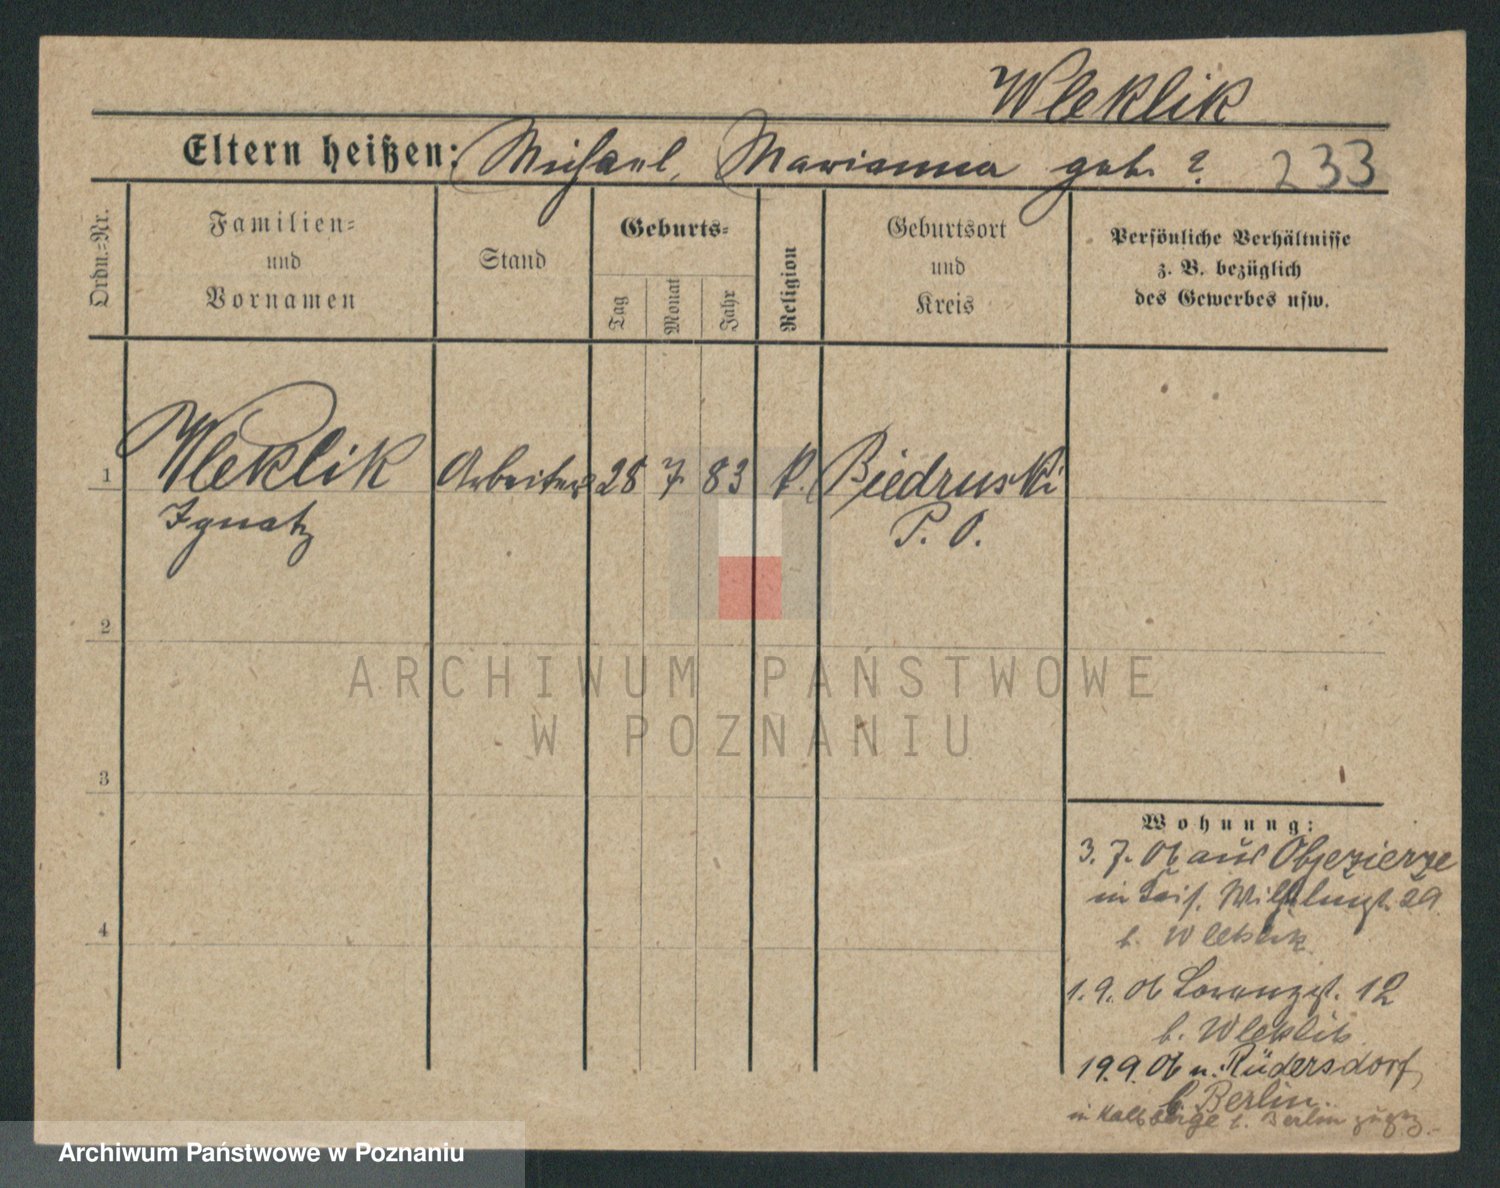 Wleklik
Eltern heißen: Michael, Marianna geb. ? 233
Ordn.=Nr.
Familien=
und
Vornamen
Stand
Geburts=
Tag
Monat
Jahr
Religion
Geburtsort
und
Kreis
Persönliche Verhältnisse
z. B. bezüglich
des Gewerbes usw.
1 Wleklik Arbeiter 28 7 83 k. Biedruski
Ignatz P. O.
2
ARCHIWUM PAŃSTWOWE
W POZNANIU
3
Wohnung:
3. 7. 06 aus Objezierze
in Kais. Wilhelmst. 29
b. Wleklik
4
1. 9. 06 Lorenzst. 12
b. Wleklik
19. 9. 06 n. Rüdersdorf
b. Berlin.
in Kalkberge b. Berlin
Archiwum Państwowe w Poznaniu